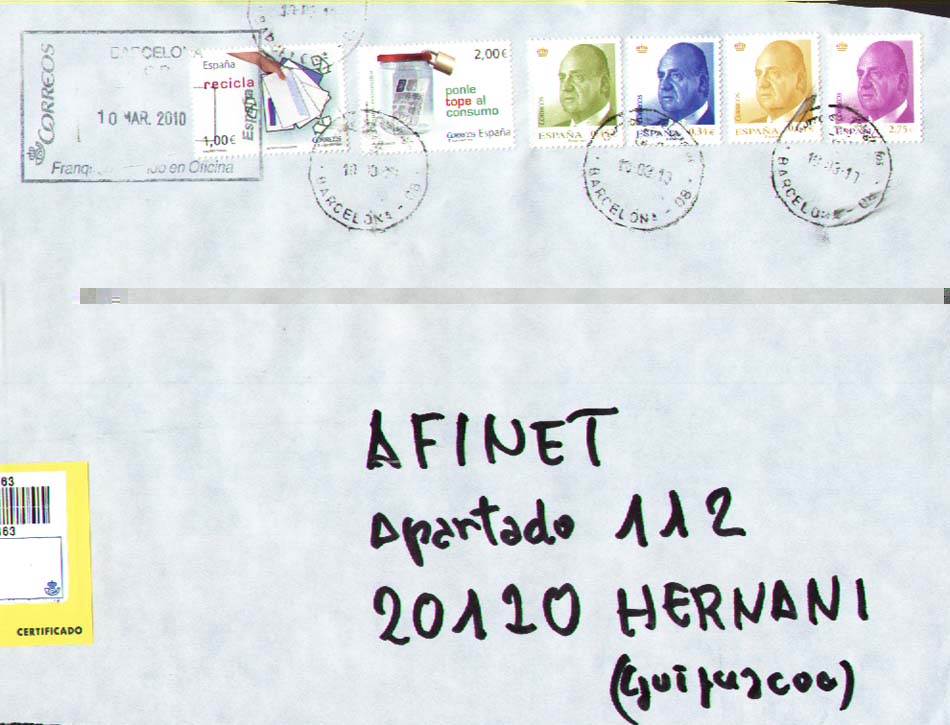 CORREOS
BARCELONA
10 MAR. 2010
en Oficina
España
recicla
1,00€
España
2,00€
ponle
tope al
consumo
CORREOS España
CORREOS
ESPAÑA
CORREOS
ESPAÑA
0.34€
CORREOS
ESPAÑA
CORREOS
ESPAÑA
2.75€
BARCELONA - 08
BARCELONA - 08
BARCELONA
AFINET
Apartado 112
20120 HERNANI
(Guipuscoa)
63
163
CERTIFICADO